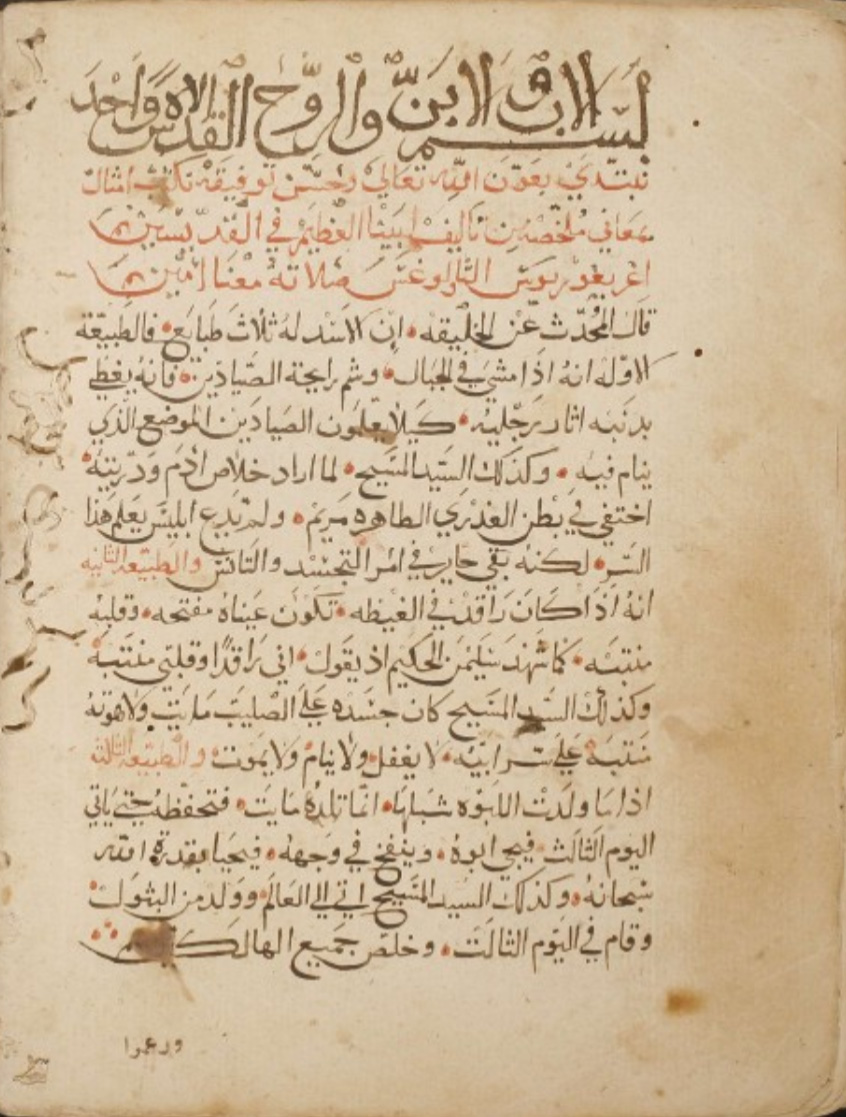 بسم الاب والابن والروح القدس الاه واحد
نبتدي بعون الله تعالي وحسن توفيقه نكتب امثال
بمعاني ملخصه من تاليف ابينا العظيم في القديسين
اغريغوريوس الثاولوغس صلاته معنا امين
قال المحدث عن الخليقه ان الاسد له ثلاث طبايع فالطبيعة
الاوله انه اذا مشي في الجبال وشم رايحة الصيادين فانه يغطي
بدنبه اثار رجليه كيلا يعلمون الصيادين الموضع الذي
ينام فيه وكذلك السيد المسيح لما اراد خلاص ادم ودريته
اختفي في بطن العذري الطاهره مريم ولم يدع ابليس يعلم هذا
السر لكنه بقي حاير في امر التجسد والتانس والطبيعه الثانيه
انه اذا كان راقد في الغيطه تكون عيناه مفتحه وقلبه
منتبه كما شهد سليمن الحكيم اذ يقول اني راقدا وقلبي منتبه
وكذلك السيد المسيح كان جسده علي الصليب مايت ولاهوته
منتبه علي سرابيه لا يغفل ولا ينام ولا يموت والطبيعه الثالثه
اذا ما ولدت اللبوه شبلها انما تلده مايت فتحفظه حتي ياتي
اليوم الثالث فيجي ابوه وينفخ في وجهه فيحيا بقدرة الله
سبحانه وكذلك السيد المسيح اتي الي العالم وولد من البتول
وقام في اليوم الثالث وخلص جميع الهالكين